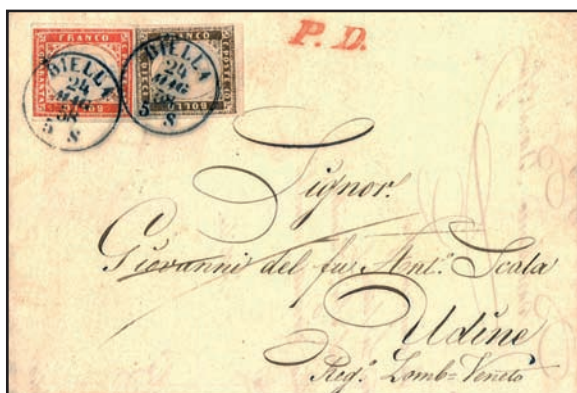 P. D.
FRANCO
C. POSTE
BOLLO
BIELLA
24
MAG
58
5 S
BIELLA
24
MAG
58
5 S
Signor.
Giovanni del fu Ant.º Scala
Udine
Reg.º Lomb=Veneto